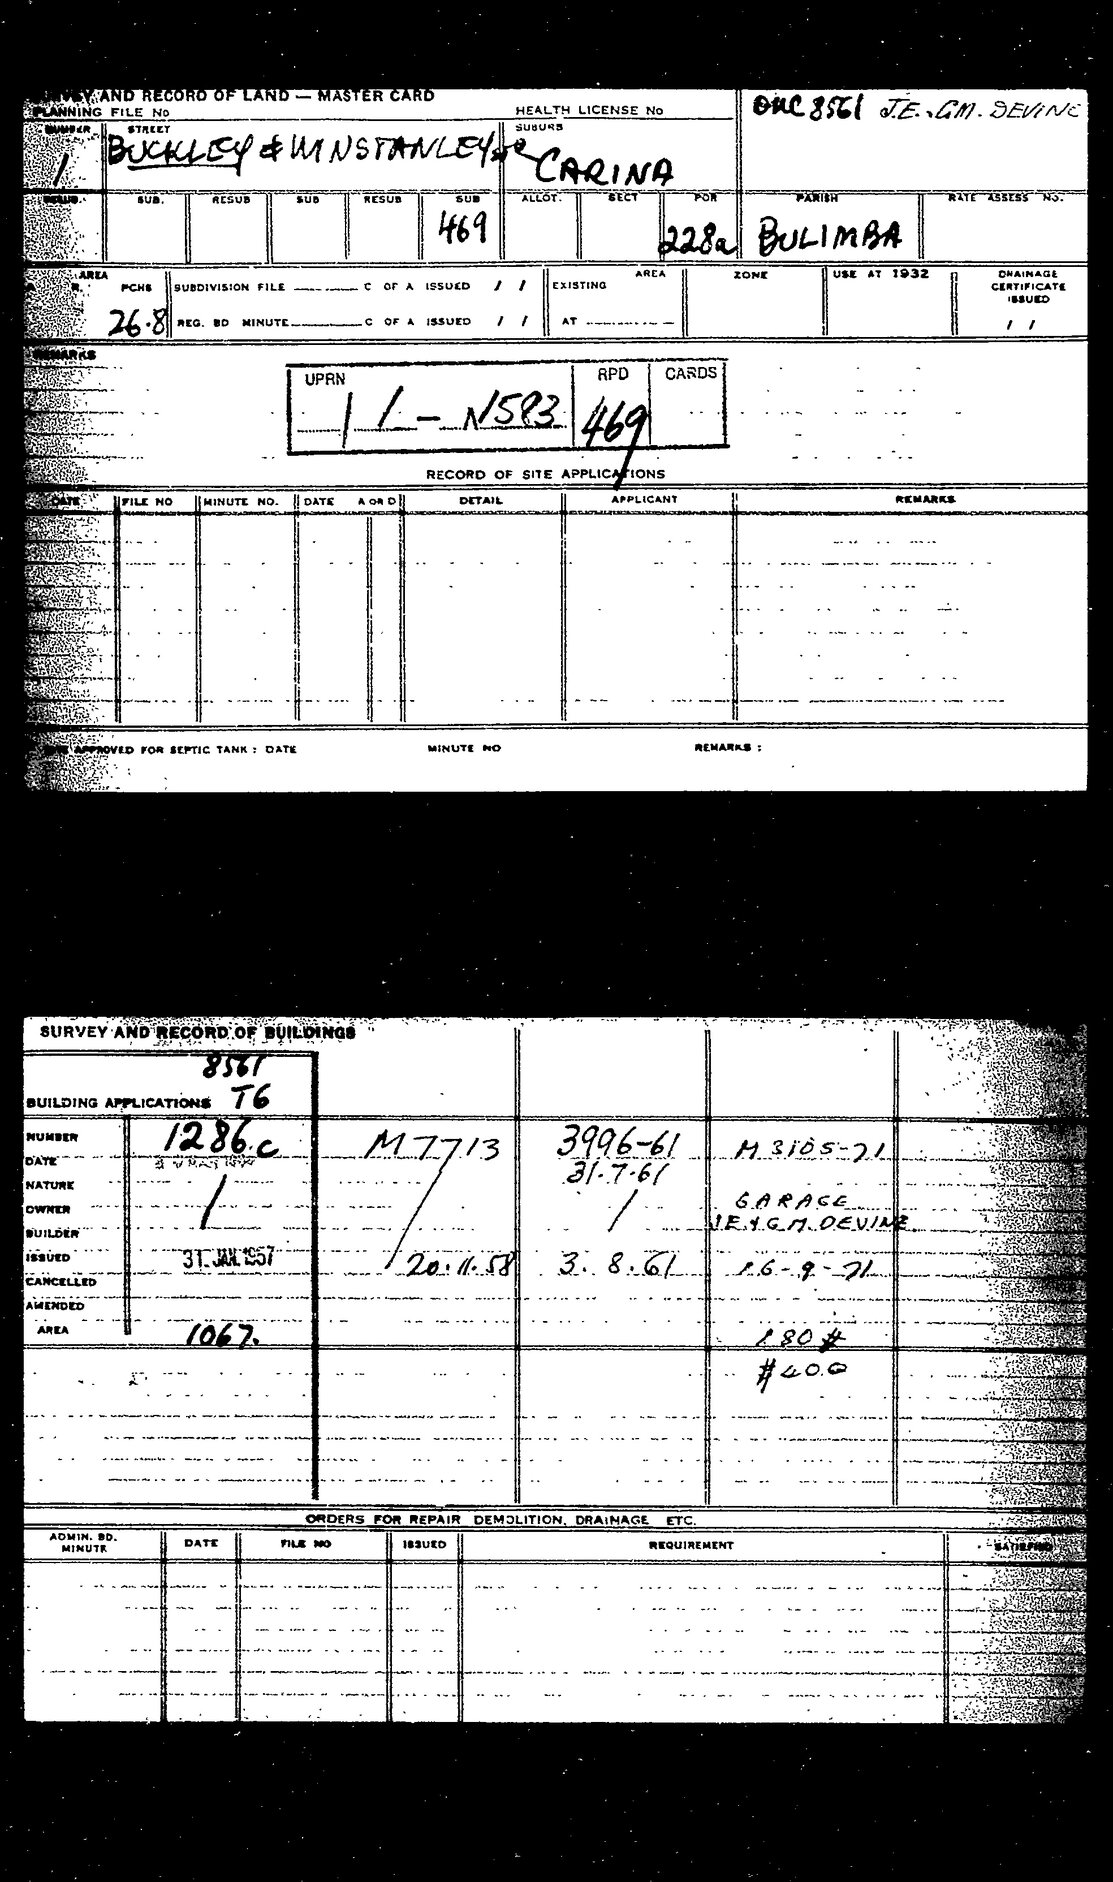 SURVEY AND RECORD OF LAND — MASTER CARD
PLANNING FILE No HEALTH LICENSE No OHC 8561 J.E. & G.M. DEVINE
NUMBER STREET SUBURB
1 BUCKLEY & WINSTANLEY STS CARINA
RESUB. SUB. RESUB SUB RESUB SUB ALLOT. SECT POR PARISH RATE ASSESS NO.
469 228a BULIMBA
AREA AREA ZONE USE AT 1932 DRAINAGE
A. R. PCHS SUBDIVISION FILE C OF A ISSUED / / EXISTING CERTIFICATE
ISSUED
26.8 REG. BD MINUTE C OF A ISSUED / / AT / /
REMARKS
UPRN RPD CARDS
1 1 - N583 469
RECORD OF SITE APPLICATIONS
DATE FILE NO MINUTE NO. DATE A OR D DETAIL APPLICANT REMARKS
APPROVED FOR SEPTIC TANK : DATE MINUTE NO REMARKS :
SURVEY AND RECORD OF BUILDINGS
8561
BUILDING APPLICATIONS T6
NUMBER 1286.c M7713 3996-61 M3105-71
DATE 31.7.61
NATURE / / / GARAGE
OWNER J.E & G.M. DEVINE
BUILDER
ISSUED 31. JAN. 1957 20.11.58 3.8.61 16-9-71
CANCELLED
AMENDED
AREA 1067. 180 #
#400
ORDERS FOR REPAIR DEMOLITION, DRAINAGE ETC.
ADMIN. BD. MINUTE DATE FILE NO ISSUED REQUIREMENT SATISFIED